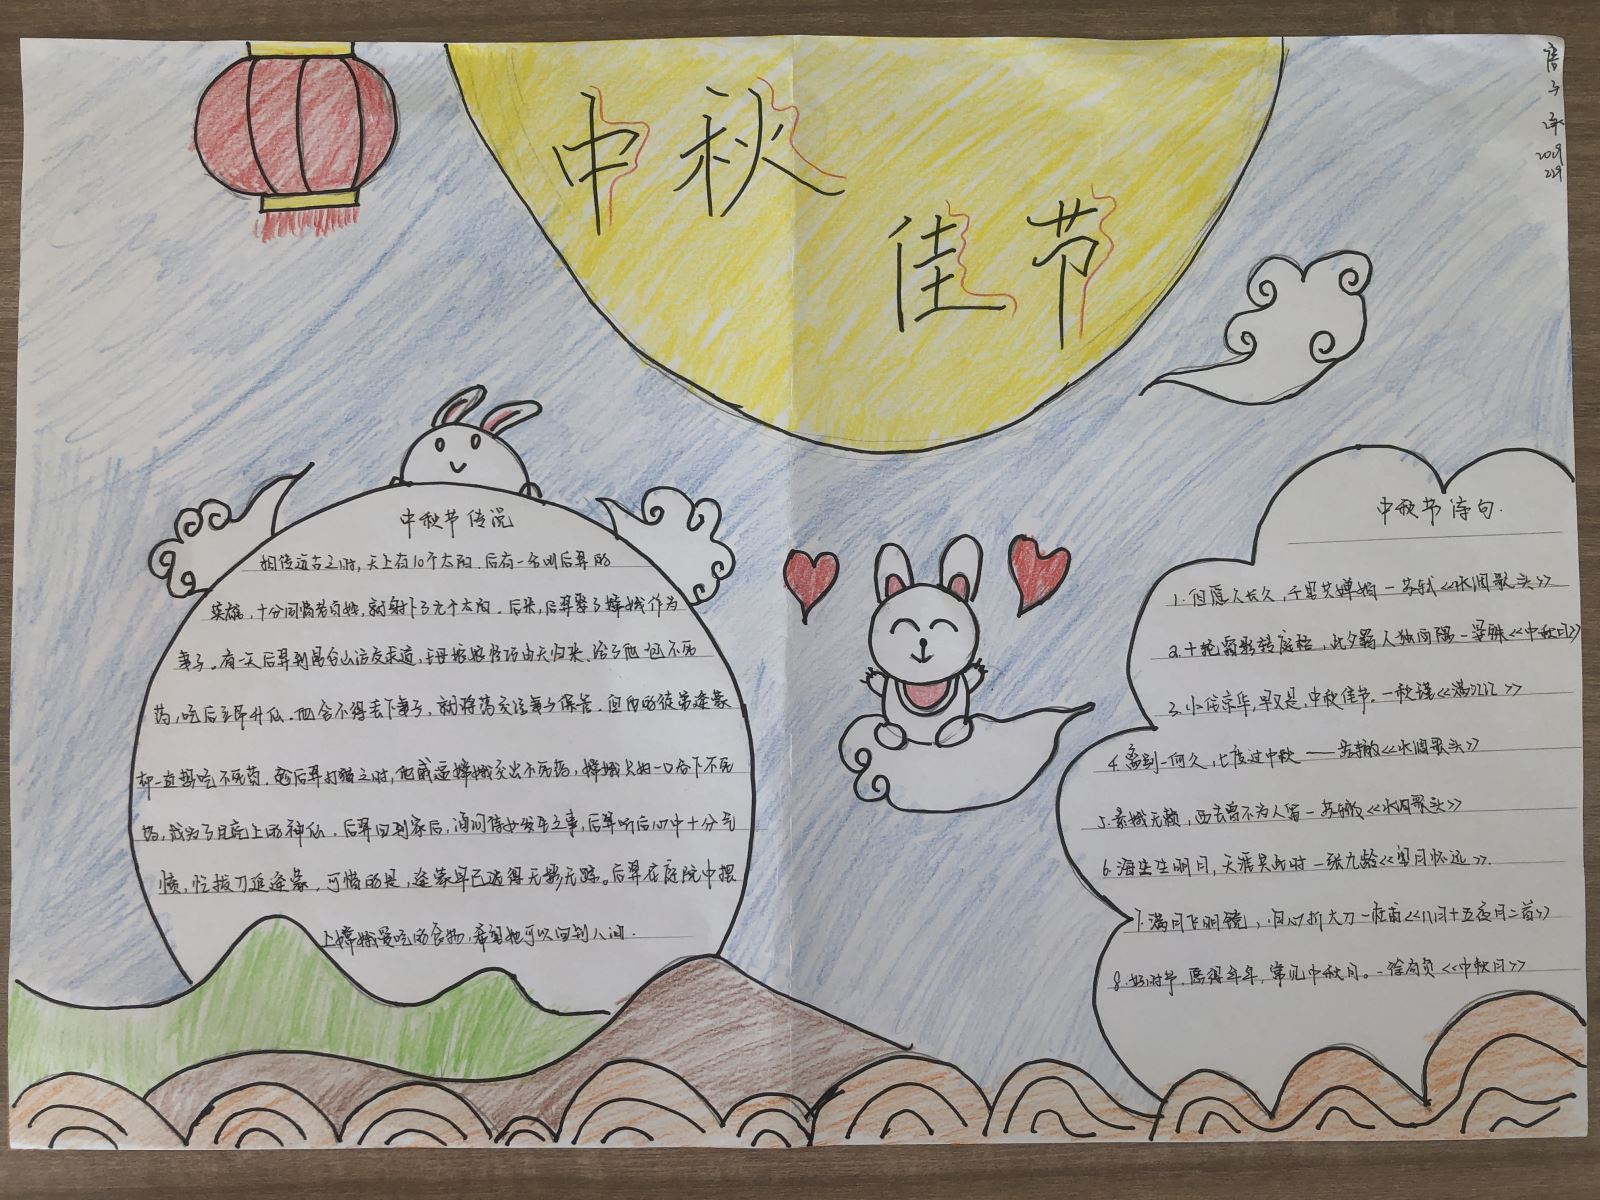 中秋
佳节
2019
229
中秋节传说
相传远古之时,天上有10个太阳.后有一名叫后羿的
英雄,十分同情老百姓,就射下了九个太阳.后来,后羿娶了嫦娥作为
妻子。有一天后羿到昆仑山访友求道,王母娘娘
药,吃后立即升仙.他舍不得丢下妻子,就将药交给妻子保管.但他的徒弟逢蒙
却一直想吃不死药.趁后羿打猎之时,他威逼嫦娥交出不死药,嫦娥只好一口吞下不死
药,成为了月亮上的神仙.后羿回到家后,询问侍女发生之事,后羿听后心中十分气
愤,忙拔刀追逢蒙,可惜的是,逢蒙早已逃得无影无踪。后羿在庭院中摆
上嫦娥爱吃的食物,希望她可以回到人间.
中秋节诗句.
1.但愿人长久,千里共婵娟—苏轼《水调歌头》
2.十轮霜影转庭梧,此夕羁人独向隅—晏殊《中秋月》
3.小住京华,早又是,中秋佳节。—秋瑾《满江红》
4.离别一何久,七度过中秋——苏辙《水调歌头》
5.素娥无赖,西去曾不为人留—苏辙《水调歌头》
6.海上生明月,天涯共此时—张九龄《望月怀远》.
7.满月飞明镜,归心折大刀—杜甫《八月十五夜月二首》
8.好时节.愿得年年,常见中秋月。-徐有贞《中秋月》